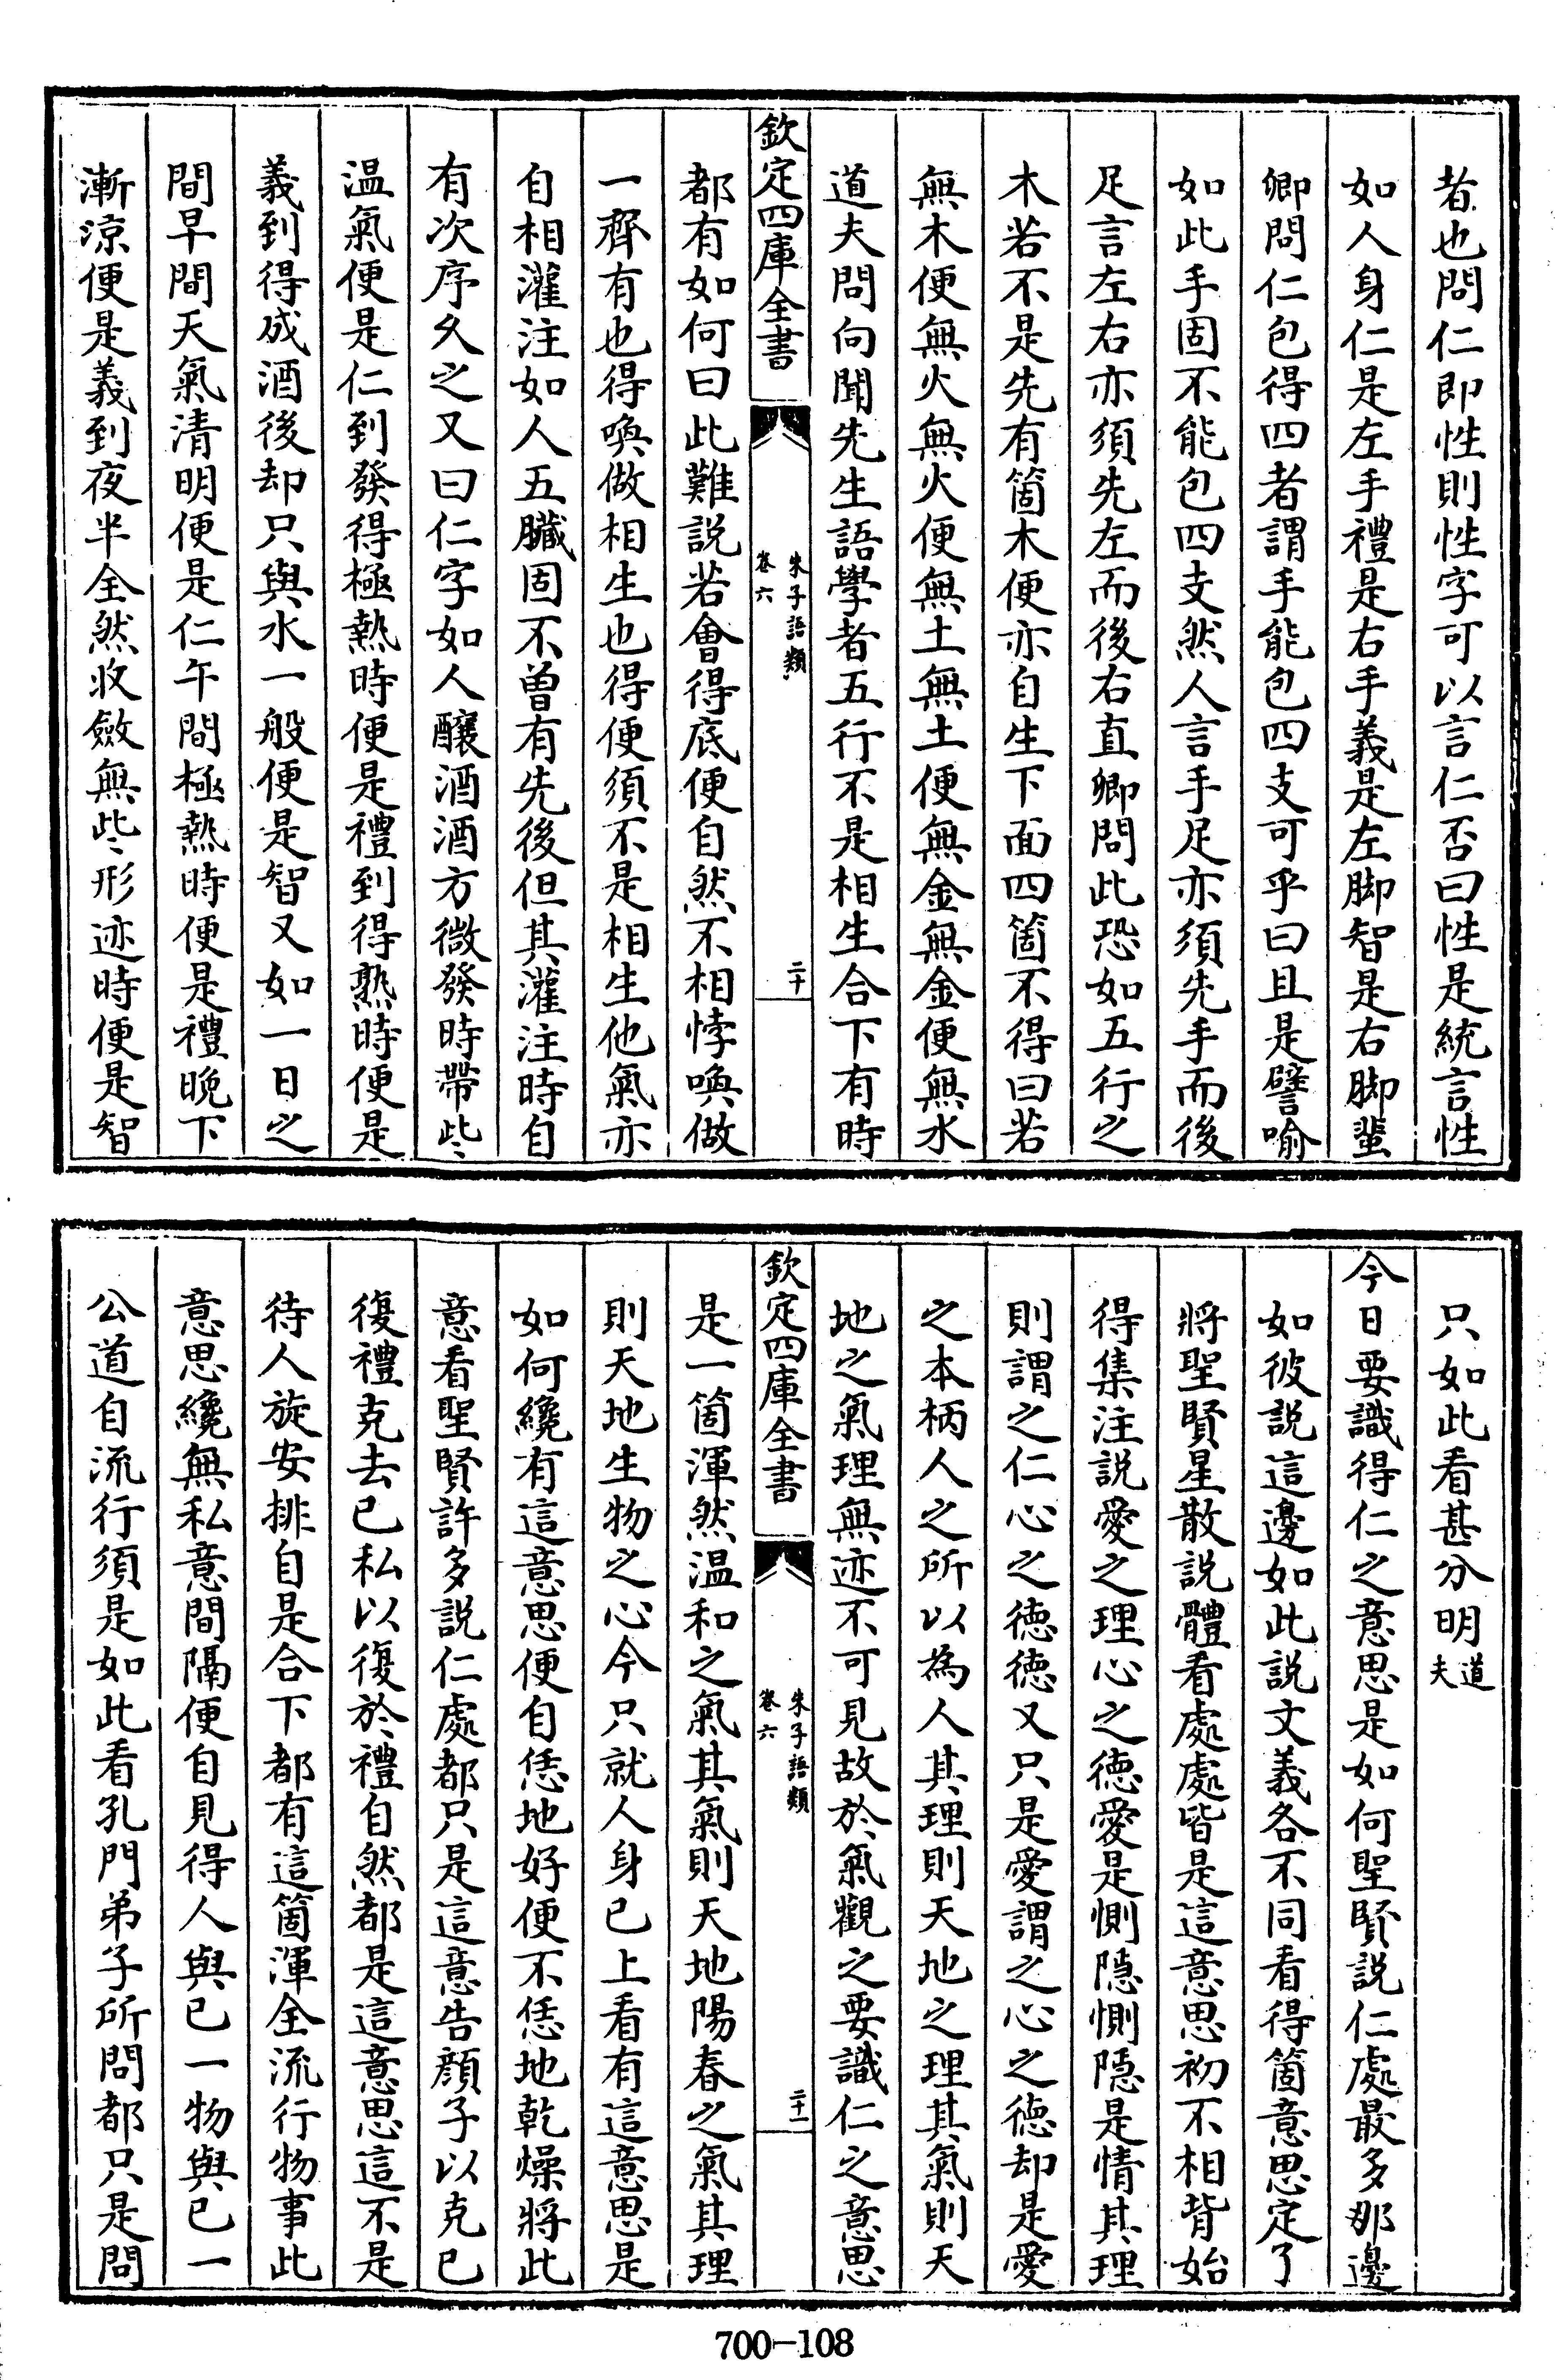 者也問仁即性則性字可以言仁否曰性是統言性
如人身仁是左手禮是右手義是左脚智是右脚蜚
卿問仁包得四者謂手能包四支可乎曰且是譬喻
如此手固不能包四支然人言手足亦須先手而後
足言左右亦須先左而後右直卿問此恐如五行之
木若不是先有箇木便亦自生下面四箇不得曰若
無木便無火無火便無土無土便無金無金便無水
道夫問向聞先生語學者五行不是相生合下有時
欽定四庫全書
朱子語類
卷六
二十
都有如何曰此難説若會得底便自然不相悖喚做
一齊有也得喚做相生也得便須不是相生他氣亦
自相灌注如人五臟固不曾有先後但其灌注時自
有次序久之又曰仁字如人釀酒酒方微發時帶些
温氣便是仁到發得極熱時便是禮到得熟時便是
義到得成酒後却只與水一般便是智又如一日之
間早間天氣清明便是仁午間極熱時便是禮晚下
漸涼便是義到夜半全然收斂無些形迹時便是智
只如此看甚分明道夫
今日要識得仁之意思是如何聖賢説仁處最多那邊
如彼説這邊如此説文義各不同看得箇意思定了
將聖賢星散説體看處處皆是這意思初不相背始
得集注説愛之理心之德愛是惻隱惻隱是情其理
則謂之仁心之德德又只是愛謂之心之德却是愛
之本柄人之所以為人其理則天地之理其氣則天
地之氣理無迹不可見故於氣觀之要識仁之意思
欽定四庫全書
朱子語類
卷六
二十一
是一箇渾然温和之氣其氣則天地陽春之氣其理
則天地生物之心今只就人身已上看有這意思是
如何纔有這意思便自恁地好便不恁地乾燥將此
意看聖賢許多説仁處都只是這意告顔子以克己
復禮克去己私以復於禮自然都是這意思這不是
待人旋安排自是合下都有這箇渾全流行物事此
意思纔無私意間隔便自見得人與己一物與己一
公道自流行須是如此看孔門弟子所問都只是問
700-108